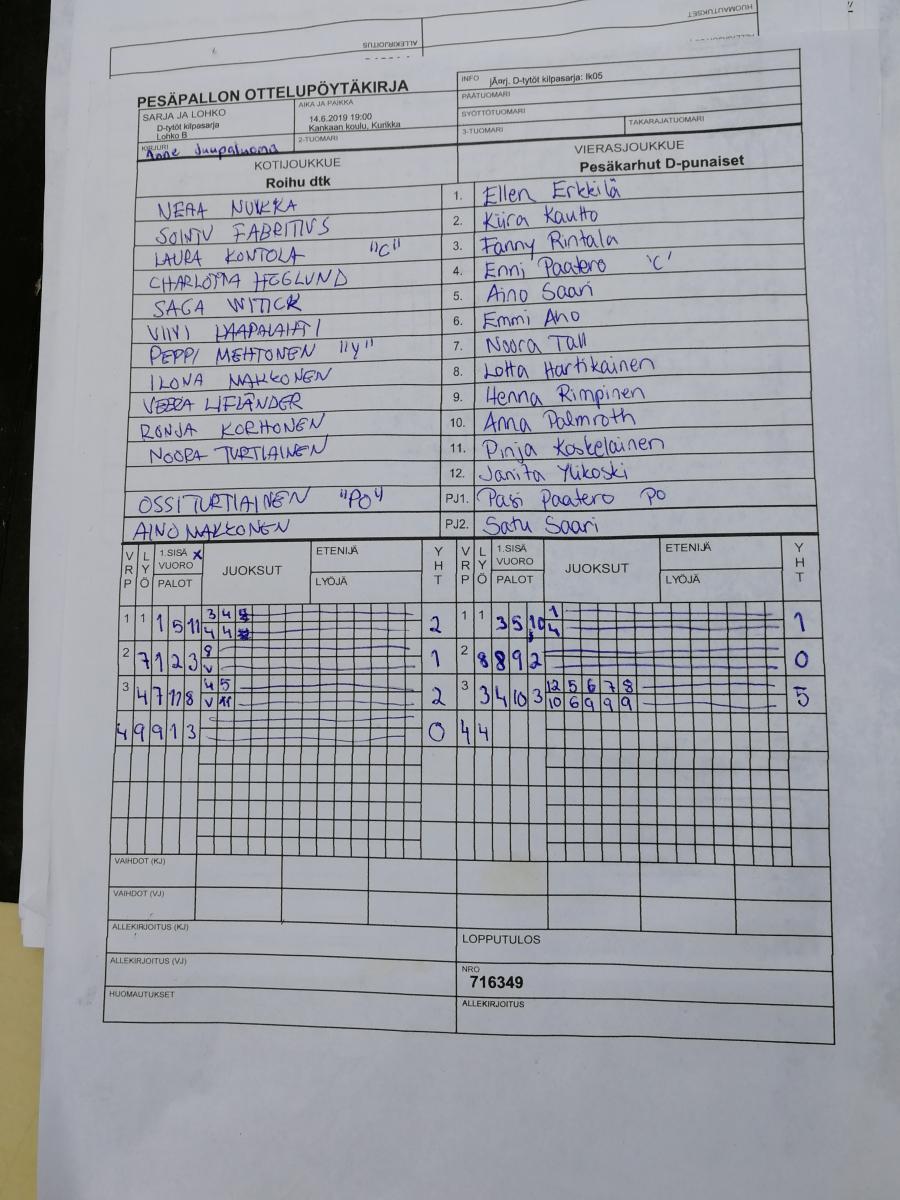 HUOMAUTUKSET
ALLEKIRJOITUS
PESÄPALLON OTTELUPÖYTÄKIRJA
INFO jÄorj. D-tytöt kilpasarja: lk05
PÄÄTUOMARI
SARJA JA LOHKO
D-tytöt kilpasarja
Lohko B
AIKA JA PAIKKA
14.6.2019 19:00
Kankaan koulu, Kurikka
SYÖTTÖTUOMARI
3-TUOMARI
TAKARAJATUOMARI
KIRJURI
Anne Juupaluoma
2-TUOMARI
KOTIJOUKKUE
Roihu dtk
VIERASJOUKKUE
Pesäkarhut D-punaiset
NEAA NUKKA 1. Ellen Erkkilä
SOINTU FABRITIUS 2. Kiira Kautto
LAURA KONTOLA "C" 3. Fanny Rintala
CHARLOTTA HÖGLUND 4. Enni Paatero 'C'
SAGA WITICK 5. Aino Saari
VIIVI LAAPALAHTI 6. Emmi Aho
PEPPI MEHTONEN "Y" 7. Noora Tall
ILONA MAKKONEN 8. Lotta Hartikainen
VEERA LIFLÄNDER 9. Henna Rimpinen
RONJA KORHONEN 10. Anna Palmroth
NOORA TURTIAINEN 11. Pinja Koskelainen
12. Janita Ylikoski
OSSI TURTIAINEN "PO" PJ1. Pasi Paatero PO
AINO MAKKONEN PJ2. Satu Saari
VRP LYÖ 1.SISÄ X VUORO PALOT JUOKSUT ETENIJÄ LYÖJÄ YHT VRP LYÖ 1.SISÄ VUORO PALOT JUOKSUT ETENIJÄ LYÖJÄ YHT
1 1 1 5 11 3 4 2 1 1 3 5 10 1 1
4 4 4
2 7 1 2 3 8 1 2 8 8 9 2 0
V
3 4 7 11 8 4 5 2 3 3 4 10 3 12 5 6 7 8 5
V 11 10 6 9 9 9
4 9 9 1 3 0 4 4
VAIHDOT (KJ)
VAIHDOT (VJ)
ALLEKIRJOITUS (KJ)
LOPPUTULOS
ALLEKIRJOITUS (VJ)
NRO
716349
HUOMAUTUKSET
ALLEKIRJOITUS